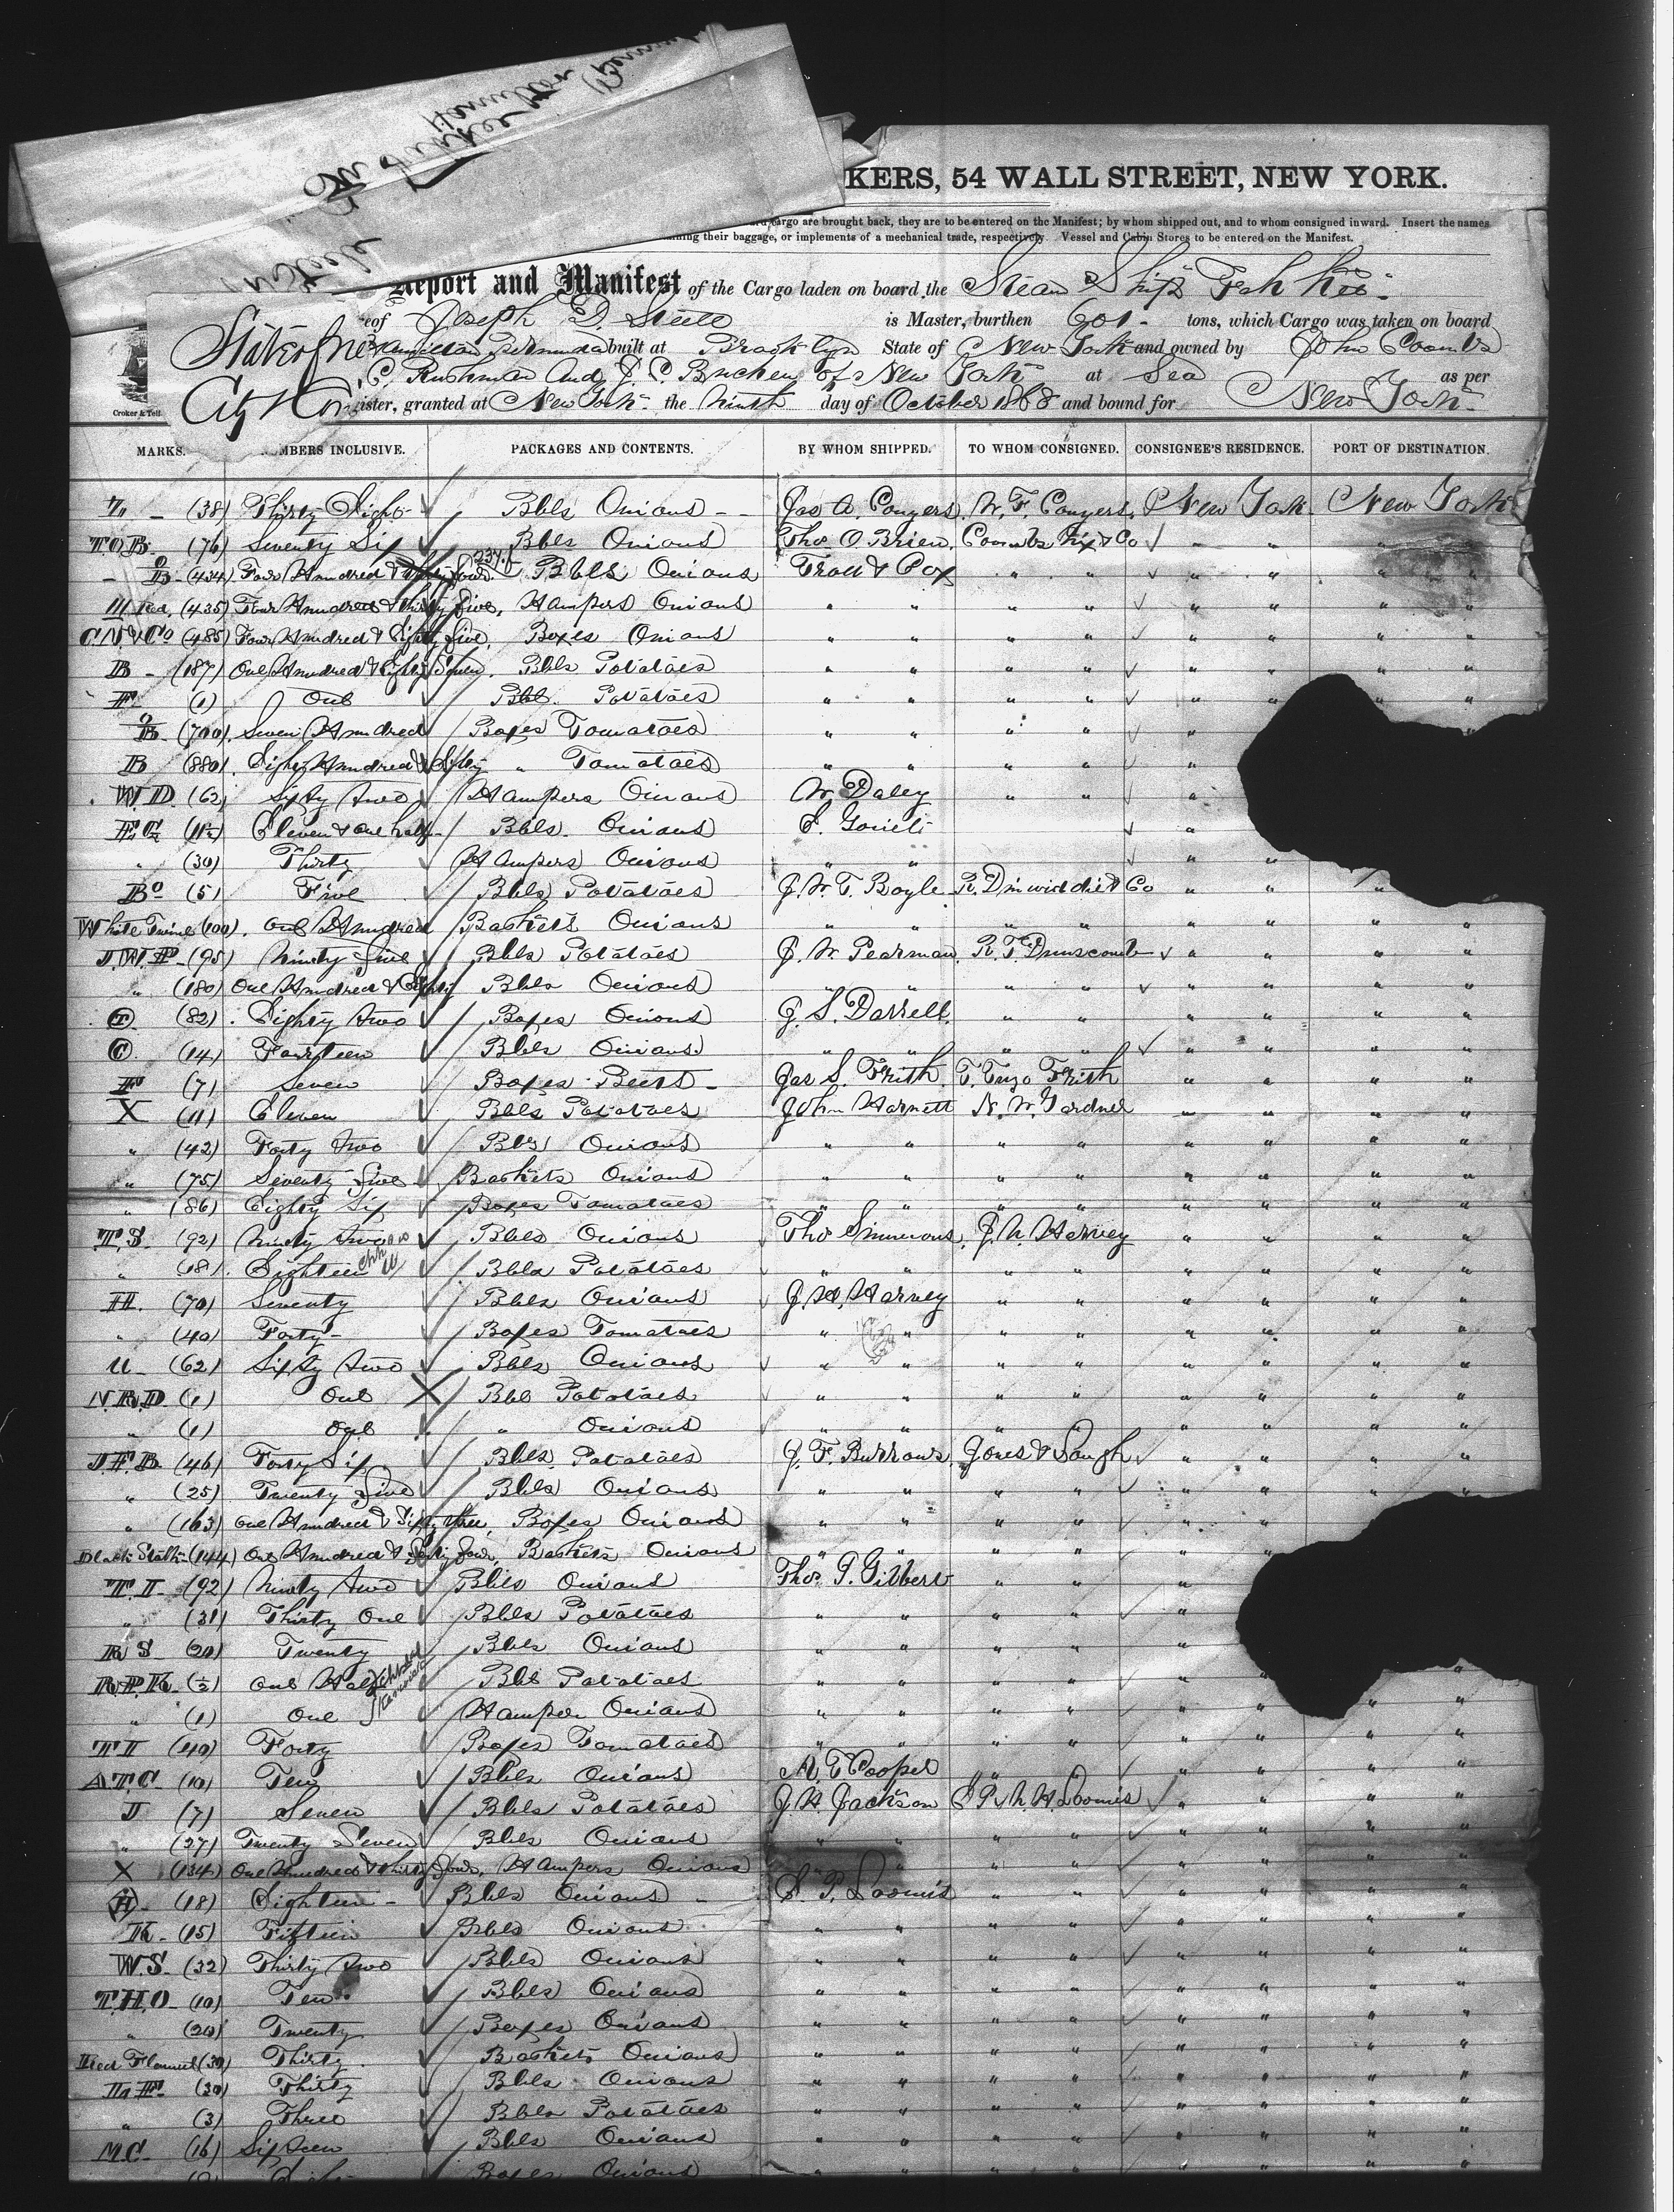 Hamilton
KERS, 54 WALL STREET, NEW YORK.
cargo are brought back, they are to be entered on the Manifest; by whom shipped out, and to whom consigned inward. Insert the names
their baggage, or implements of a mechanical trade, respectively. Vessel and Cabin Stores to be entered on the Manifest.
Report and Manifest of the Cargo laden on board the Steam Ship Fah Kee
of Joseph D. Steele is Master, burthen 601 tons, which Cargo was taken on board
State of Hamilton Bermuda built at Brooklyn State of New York and owned by John Coombs
City & Co C. Rushman And J. C. Buchen of New York at Sea as per
Croker & Tell ister, granted at New York the Ninth day of October 1868 and bound for New York
MARKS. MBERS INCLUSIVE. PACKAGES AND CONTENTS. BY WHOM SHIPPED. TO WHOM CONSIGNED. CONSIGNEE'S RESIDENCE. PORT OF DESTINATION.
(38) Thirty Eight Bbls Onions Jas A. Conyers W. F. Conyers New York New York
T.O.B. (76) Seventy Six Bbls Onions Thos O. Brien Coombs & Co " " "
B (434) Four Hundred & Thirty four 234 Bbls Onions Trott & Cox " " " " " "
Red (435) Four Hundred & Thirty five, Hampers Onions " " " " " " " "
C.N. & Co (485) Four Hundred & Eighty five Boxes Onions " " " " " " " "
B - (187) One Hundred & Eighty Seven Bbls Potatoes " " " " " " " "
F (1) One Bbl. Potatoes " " " " " " " "
B (700) Seven Hundred Boxes Tomatoes " " " " " " "
B (880) Eight Hundred & Eighty " Tomatoes " " " " "
W.D. (62) Sixty two Hampers Onions W. Daley " " "
F.G. (11½) Eleven & one half Bbls. Onions "
" (30) Thirty Hampers Onions " " " "
Bo (5) Five Bbls Potatoes J. W. T. Boyle R. Dinwiddie & Co " " "
White Twine (100) One Hundred Baskets Onions " " " " " " " "
J.W.P. (95) Ninety five Bbls Potatoes J. W. Pearman R. T. Dunscomb " " " "
" (180) One Hundred & Eighty Bbls Onions " " " " " " " "
T (82) Eighty two Boxes Onions J. S. Darrell " " " " " "
C (14) Fourteen Bbls Onions " " " " " " " "
F (7) Seven Boxes Beets Jas S. Frith T. Tuzo Frith " " " "
X (11) Eleven Bbls Potatoes John Harnett N. W. Gardner " " " "
" (42) Forty two Bbls Onions " " " " " " " "
" (75) Seventy five Baskets Onions " " " " " " " "
" (86) Eighty Six Boxes Tomatoes " " " " " " " "
T.S. (92) Ninety two Bbls Onions Thos Simmons J. H. Harvey " " " "
" (18) Eighteen Bbls Potatoes " " " " " " " "
H. (70) Seventy Bbls Onions J. H. Harvey " " " " " "
" (40) Forty Boxes Tomatoes " " " " " " " "
U (62) Sixty two Bbls Onions " " " " " " " "
N.R.D (1) One X Bbl Potatoes " " " " " " " "
" (1) One " Onions " " " " " " " "
J.F.B. (46) Forty Six Bbls. Potatoes J. F. Burrows Jones & Gough " " " "
" (25) Twenty Five Bbls Onions " " " " " " " "
" (163) One Hundred & Sixty three, Boxes Onions " " " " " "
(144) One Hundred & forty four, Baskets Onions " " " " " "
T I (92) Ninety two Bbls Onions Thos. J. Gibbert " " "
" (31) Thirty One Bbls Potatoes " " " " "
R S (20) Twenty Bbls Onions " " " " "
R.P.K. (½) One Half Bbl Potatoes " " " " " " "
" (1) One Hamper Onions " " " " " " " "
T I (40) Forty Boxes Tomatoes " " " " " " " "
A.T.C. (10) Ten Bbls Onions A. T. Cooper " " " " " "
J (7) Seven Bbls Potatoes J. H. Jackson S P & W. H. Loomis " " " "
" (27) Twenty Seven Bbls Onions " " " " " " " "
X (134) One Hundred & Thirty four, Hampers Onions " " " " " " " "
H (18) Eighteen Bbls Onions S. P. Loomis " " " " " "
K (15) Fifteen Bbls Onions " " " " " " " "
W.S. (32) Thirty two Bbls Onions " " " " " " " "
T.H.O. (10) Ten Bbls Onions " " " " " " " "
" (20) Twenty Boxes Onions " " " " " " " "
Red Flannel (30) Thirty Baskets Onions " " " " " " " "
(30) Thirty Bbls Onions " " " " " " " "
" (3) Three Bbls Potatoes " " " " " " " "
M.C. (16) Sixteen Bbls Onions " " " " " " " "
Boxes Onions